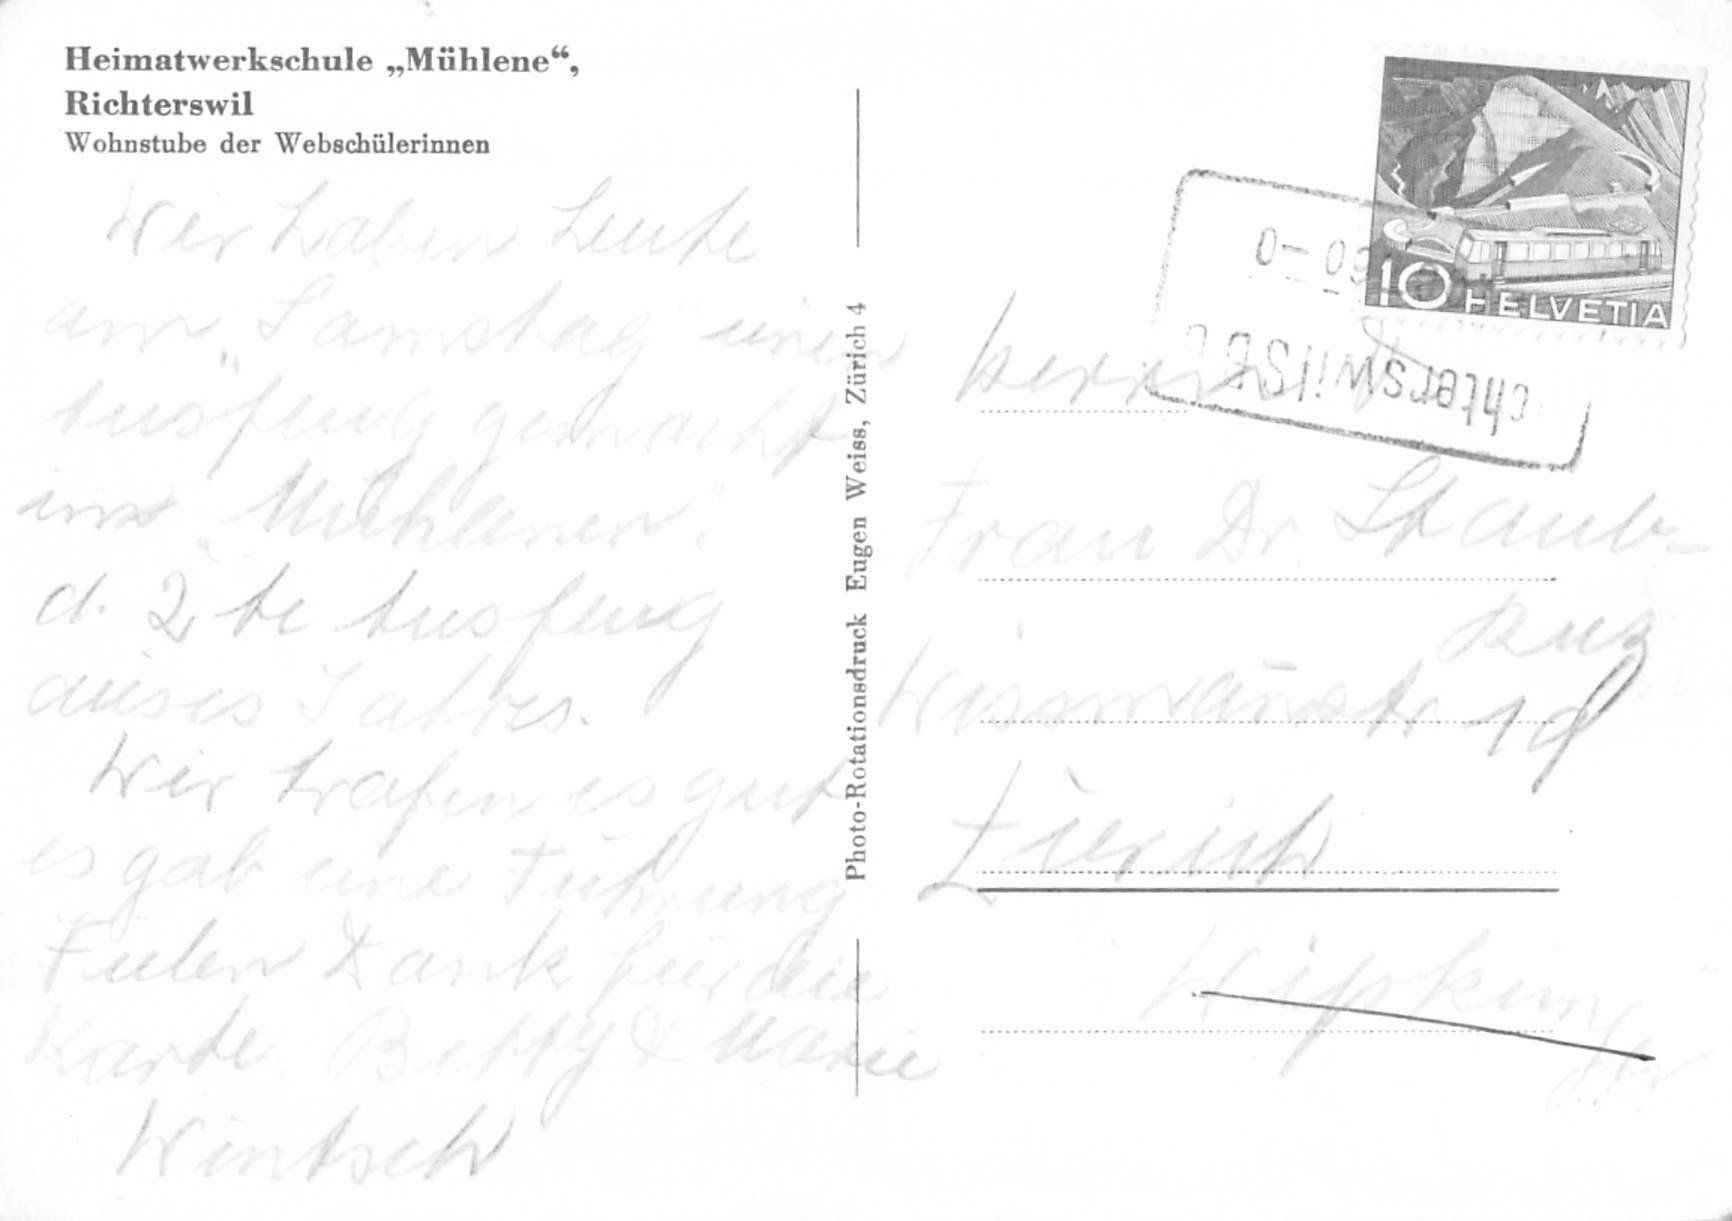 Heimatwerkschule „Mühlene“,
Richterswil
Wohnstube der Webschülerinnen
Wir haben Leute
am „Samstag“ einen
Ausflug gemacht
ins „Mühlenen“.
d. 2te Ausflug
dieses Jahres.
Wir trafen es gut
es gab eine Führung
Fielen Dank für die
Karte Betty & Marie
Wintsch
Photo-Rotationsdruck Eugen Weiss, Zürich 4
10 HELVETIA
chterswil SBB
Frau Dr. Staub-
Zürich